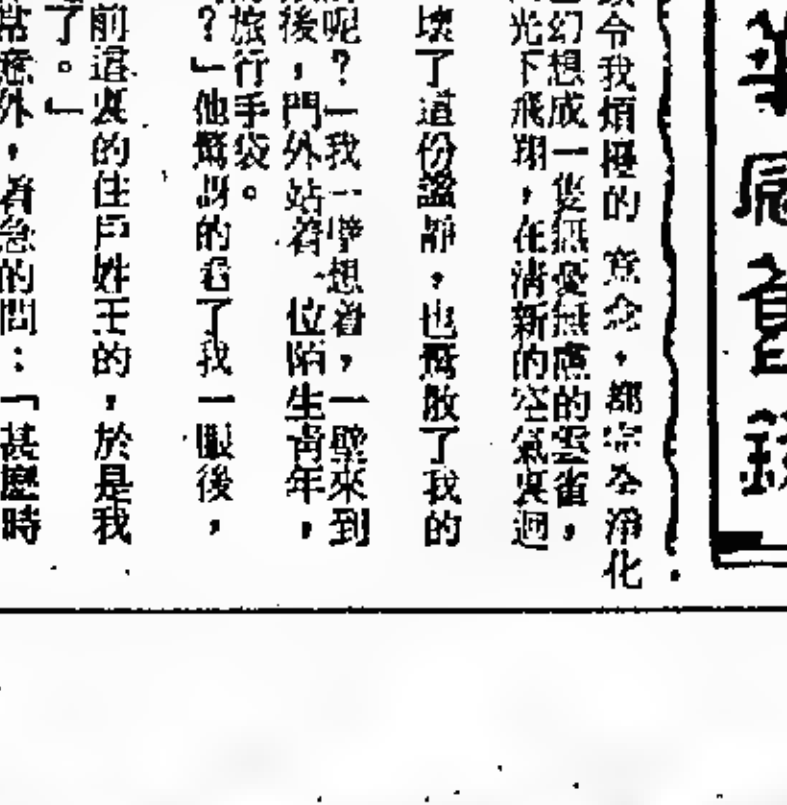 令我煩擾的意念，都完全淨化
幻想成一隻無憂無慮的雲雀，
光下飛翔，在清新的空氣裏迴
壞了這份謐靜，也驚散了我的
呢？」我一壁想着，一壁來到
後，門外站着一位陌生青年，
旅行手袋。
？」他驚訝的看了我一眼後，
前這裏的住戶姓王的，於是我
了。」
常意外，着急的問：「甚麼時